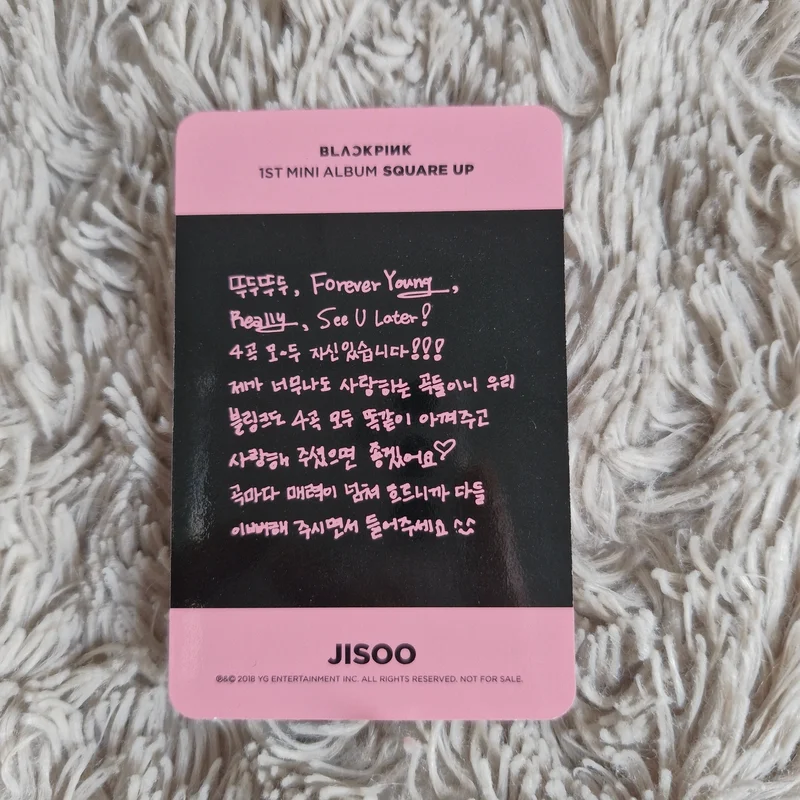 BLACKPINK
1ST MINI ALBUM SQUARE UP
뚜두뚜두, Forever Young,
Really, See U Later!
4곡 모두 자신있습니다!!!
제가 너무나도 사랑하는 곡들이니 우리
블링크도 4곡 모두 똑같이 아껴주고
사랑해 주셨으면 좋겠어요♡
곡마다 매력이 넘쳐 흐르니까 다들
이뻐해 주시면서 들어주세요 ^^
JISOO
℗&© 2018 YG ENTERTAINMENT INC. ALL RIGHTS RESERVED. NOT FOR SALE.